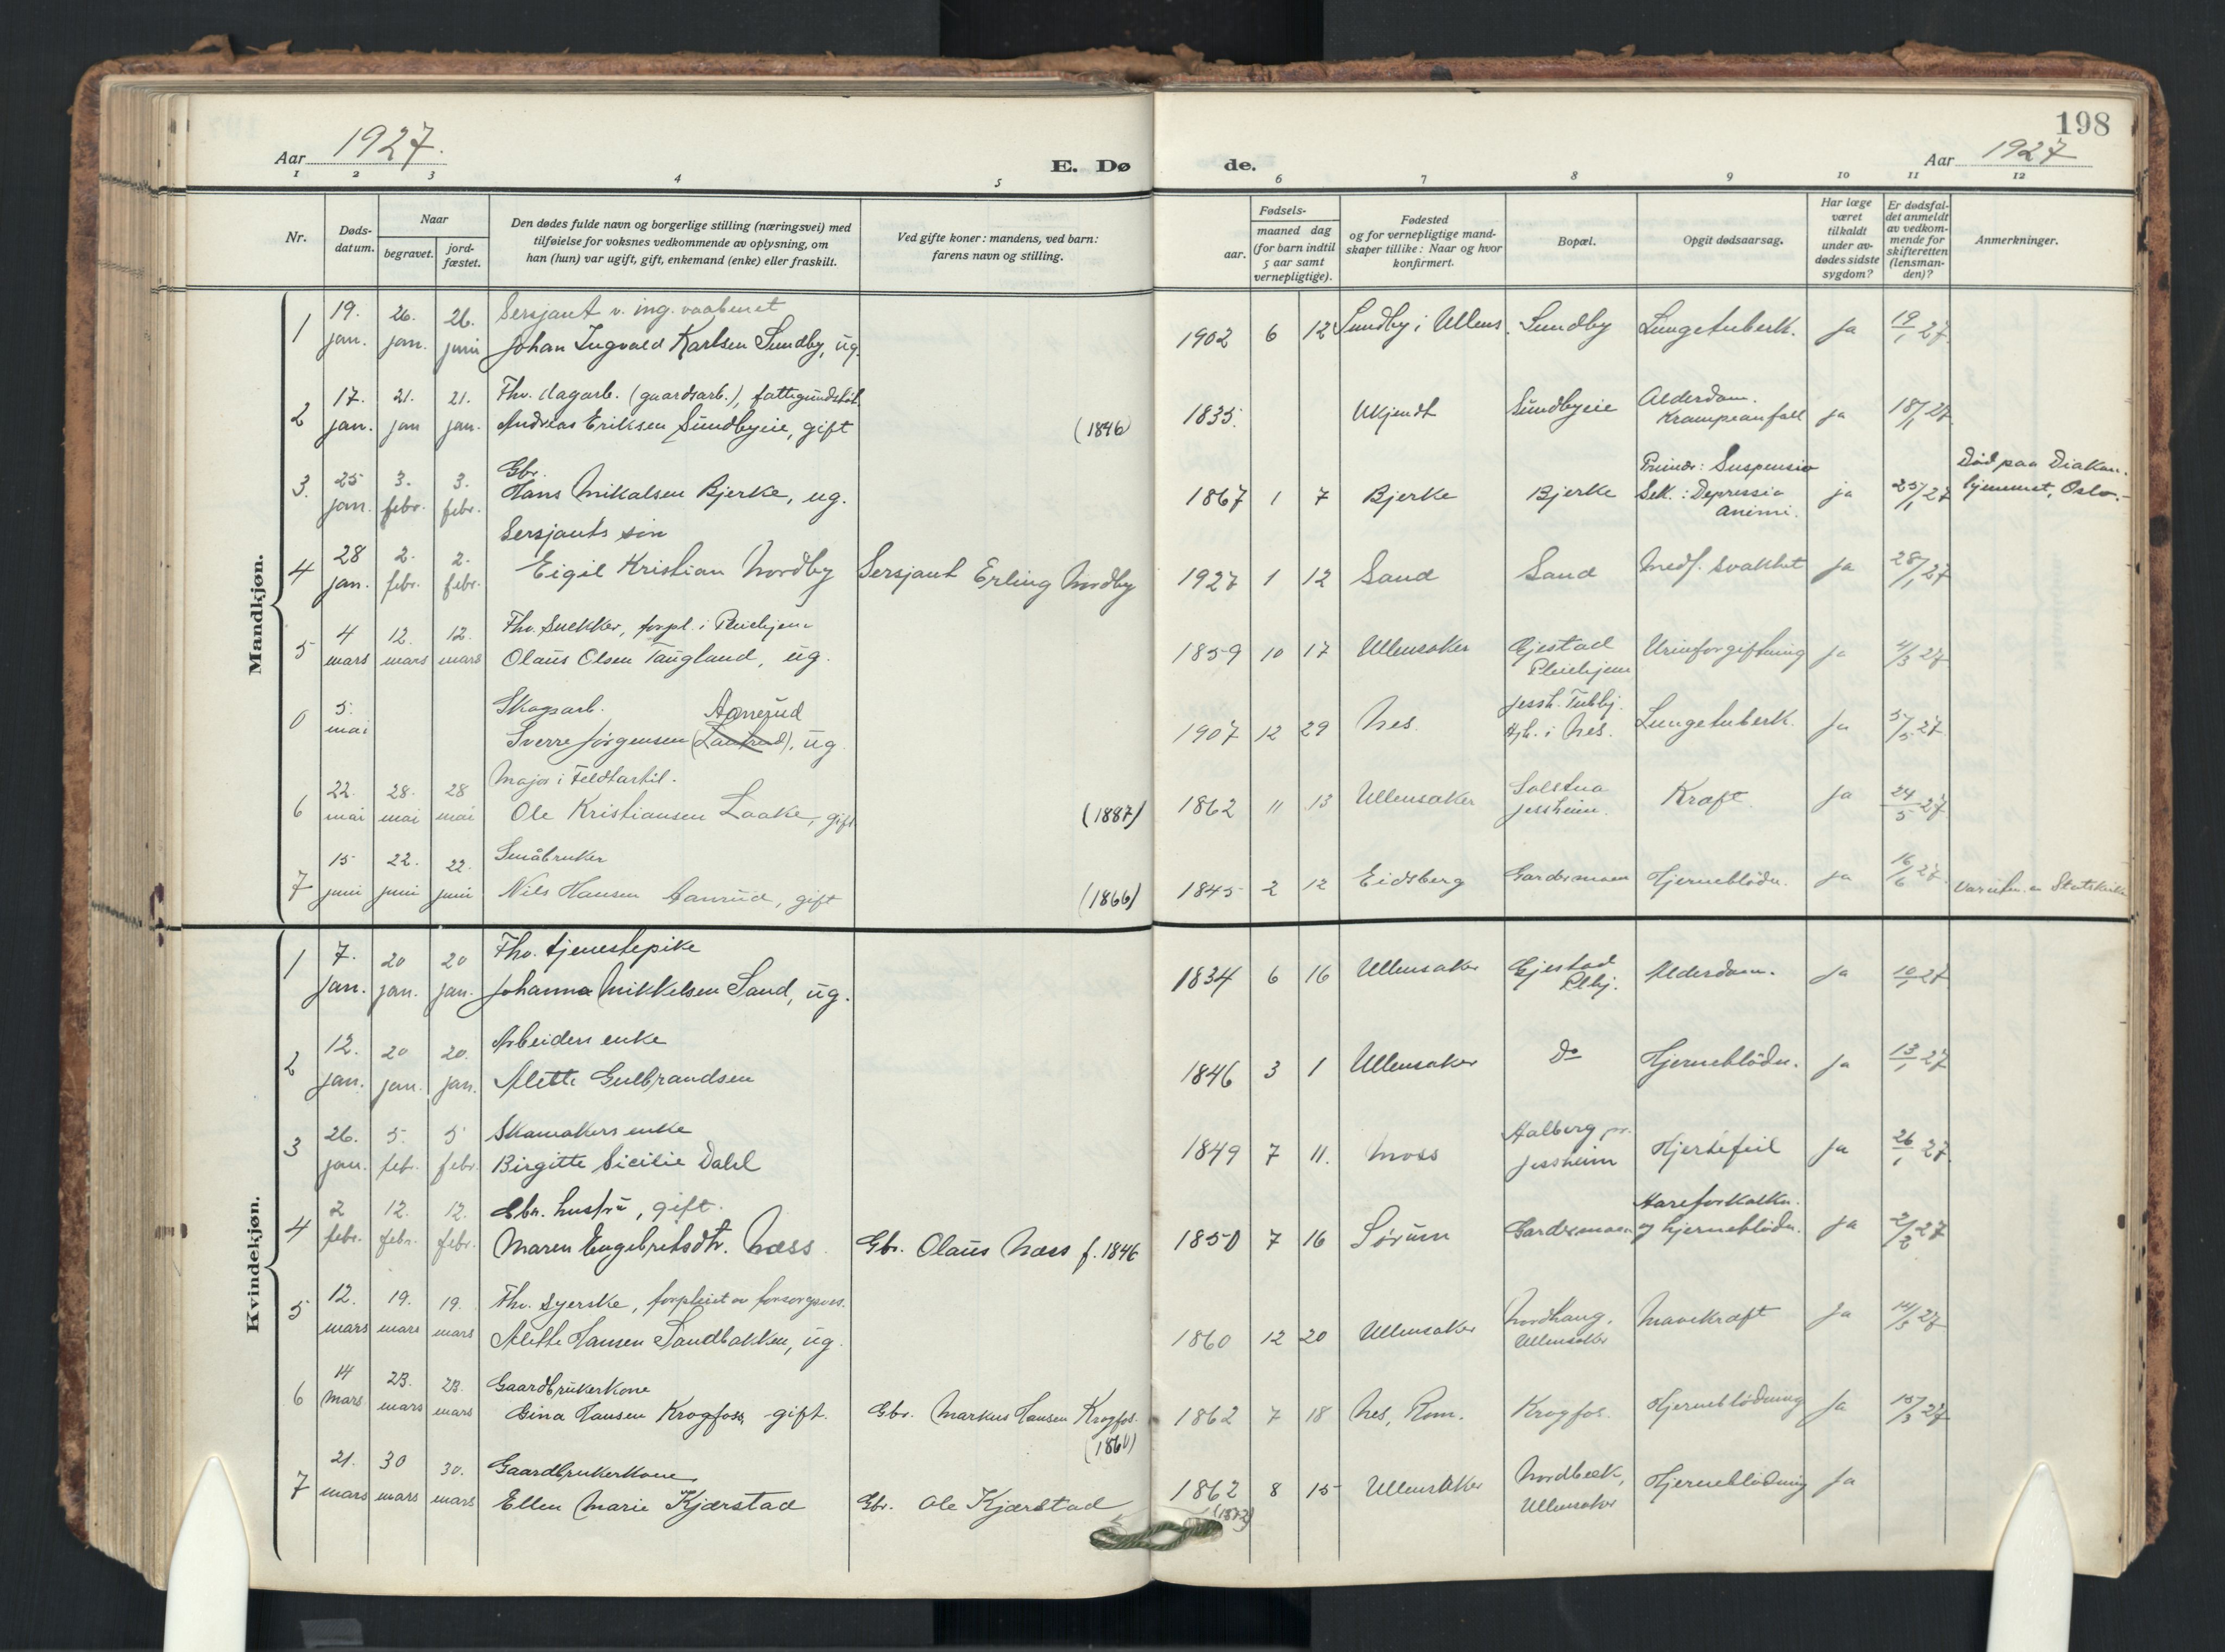 198
Aar 1927.
E. Dø
de.
Aar 1927
1 2 3 4 5 6 7 8 9 10 11 12
Nr.
Døds-
datum.
Naar
begravet.
jord-
fæstet.
Den dødes fulde navn og borgerlige stilling (næringsvei) med
tilføielse for voksnes vedkommende av oplysning, om
han (hun) var ugift, gift, enkemand (enke) eller fraskilt.
Ved gifte koner: mandens, ved barn:
farens navn og stilling.
Fødsels-
aar.
maaned dag
(for barn indtil
5 aar samt
vernepligtige).
Fødested
og for vernepligtige mand-
skaper tillike: Naar og hvor
konfirmert.
Bopæl.
Opgit dødsaarsag.
Har læge
været
tilkaldt
under av-
dødes sidste
sygdom?
Er dødsfal-
det anmeldt
av vedkom-
mende for
skifteretten
(lensman-
den)?
Anmerkninger.
Mandkjøn.
1 19. jan. 26. jan. 26. Sersjant v. ing. vaabenet
Johan Ingvald Karlsen Sundby, ug. 1902 6 12 Sundby i Ullens. Sundby Lungetuberk. Ja 19/1 27.
2 17. jan. 21. jan 21. jan. Fhv. dagarb. (gaardsarb.),
Andreas Eriksen Sundbyeie, gift (1846) 1835. Ukjendt Sundbyeie Alderdom.
Krampeanfall ja 18/1 27.
3. 25 jan. 3. febr. 3. febr. Gbr.
Hans Mikalsen Bjerke, ug. 1867 1 7 Bjerke Bjerke Primær: Suspensio
Sek.: Depressio
animi. ja 25/1 27 Død paa Diakon.
hjemmet, Oslo.
4 28 jan. 2. febr. 2. febr. Sersjants søn
Eigil Kristian Nordby Sersjant Erling Nordby 1927 1 12 Sand Sand Medf. svakhet Ja 28/1 27
5 4 mars 12. mars 12. mars Fhv. snekker, forpl. i Pleiehjem
Olaus Olsen Taugland, ug. 1859 10 17 Ullensaker Gjestad
Pleiehjem Urinforgiftning ja 4/3 27
0 5. mai Skogsarb. Aonerud
Sverre Jørgensen (Lautrud), ug. 1907 12 29 Nes. Jessh. Tubhj.
Hjh. i Nes. Lungetuberk. Ja 5/5 27
6 22. mai 28. mai 28 mai Major i Feldtartil.
Ole Kristiansen Laake, gift (1887) 1862 11 13 Ullensaker Solstua
Jessheim. Kræft Ja 24/5 27
7 15 juni 22. juni 22. juni Småbruker
Nils Hansen Aanrud, gift (1866) 1845 2 12 Eidsberg Gardermoen Hjerneblødn. ja 16/6 27. Statskirken
Kvindekjøn.
1 7. jan. 20 jan. 20 jan. Fhv. tjenestepike
Johanna Mikkelsen Sand, ug. 1834 6 16 Ullensaker Gjestad
Plhj. Alderdom. Ja 10/1 27
2 12. jan. 20 jan. 20. jan. Arbeiders enke
Alette Gulbrandsen 1846 3 1 Ullensaker Do Hjerneblødn. Ja 13/1 27
3 26. jan. 5. febr. 5 febr. Skomakers enke
Birgitte Sicilie Dahl 1849 7 11. Moss Aalberg pr.
Jessheim Hjertefeil Ja 26/1 27.
4 2 febr. 12. febr. 12. febr. Gbr. hustru, gift.
Maren Engebretsdtr. Næss Gbr. Olaus Næss f. 1846 1850 7 16 Sørum Gardermoen Aareforkalkn.
og hjerneblødn. Ja 2/2 27
5 12. mars 19. mars 19. mars Fhv. syerske, forpleiet av forsorgsves.
Alette Hansen Sandbakken, ug. 1860 12 20 Ullensaker Nordhaug,
Ullensaker Mavekræft Ja 14/3 27
6 14 mars 23. mars 23. mars Gaardbrukerkone
Gina Hansen Krogfoss, gift. Gbr. Markus Hansen Krogfos.
(1860) 1862 7 18 Nes, Rom. Krogfos. Hjerneblødning Ja 15/3 27
7 21. mars 30 mars 30. mars Gaardbrukerkone
Ellen Marie Kjærstad Gbr. Ole Kjærstad 1862 8 15 Ullensaker Nordbek,
Ullensaker Hjerneblødning Ja